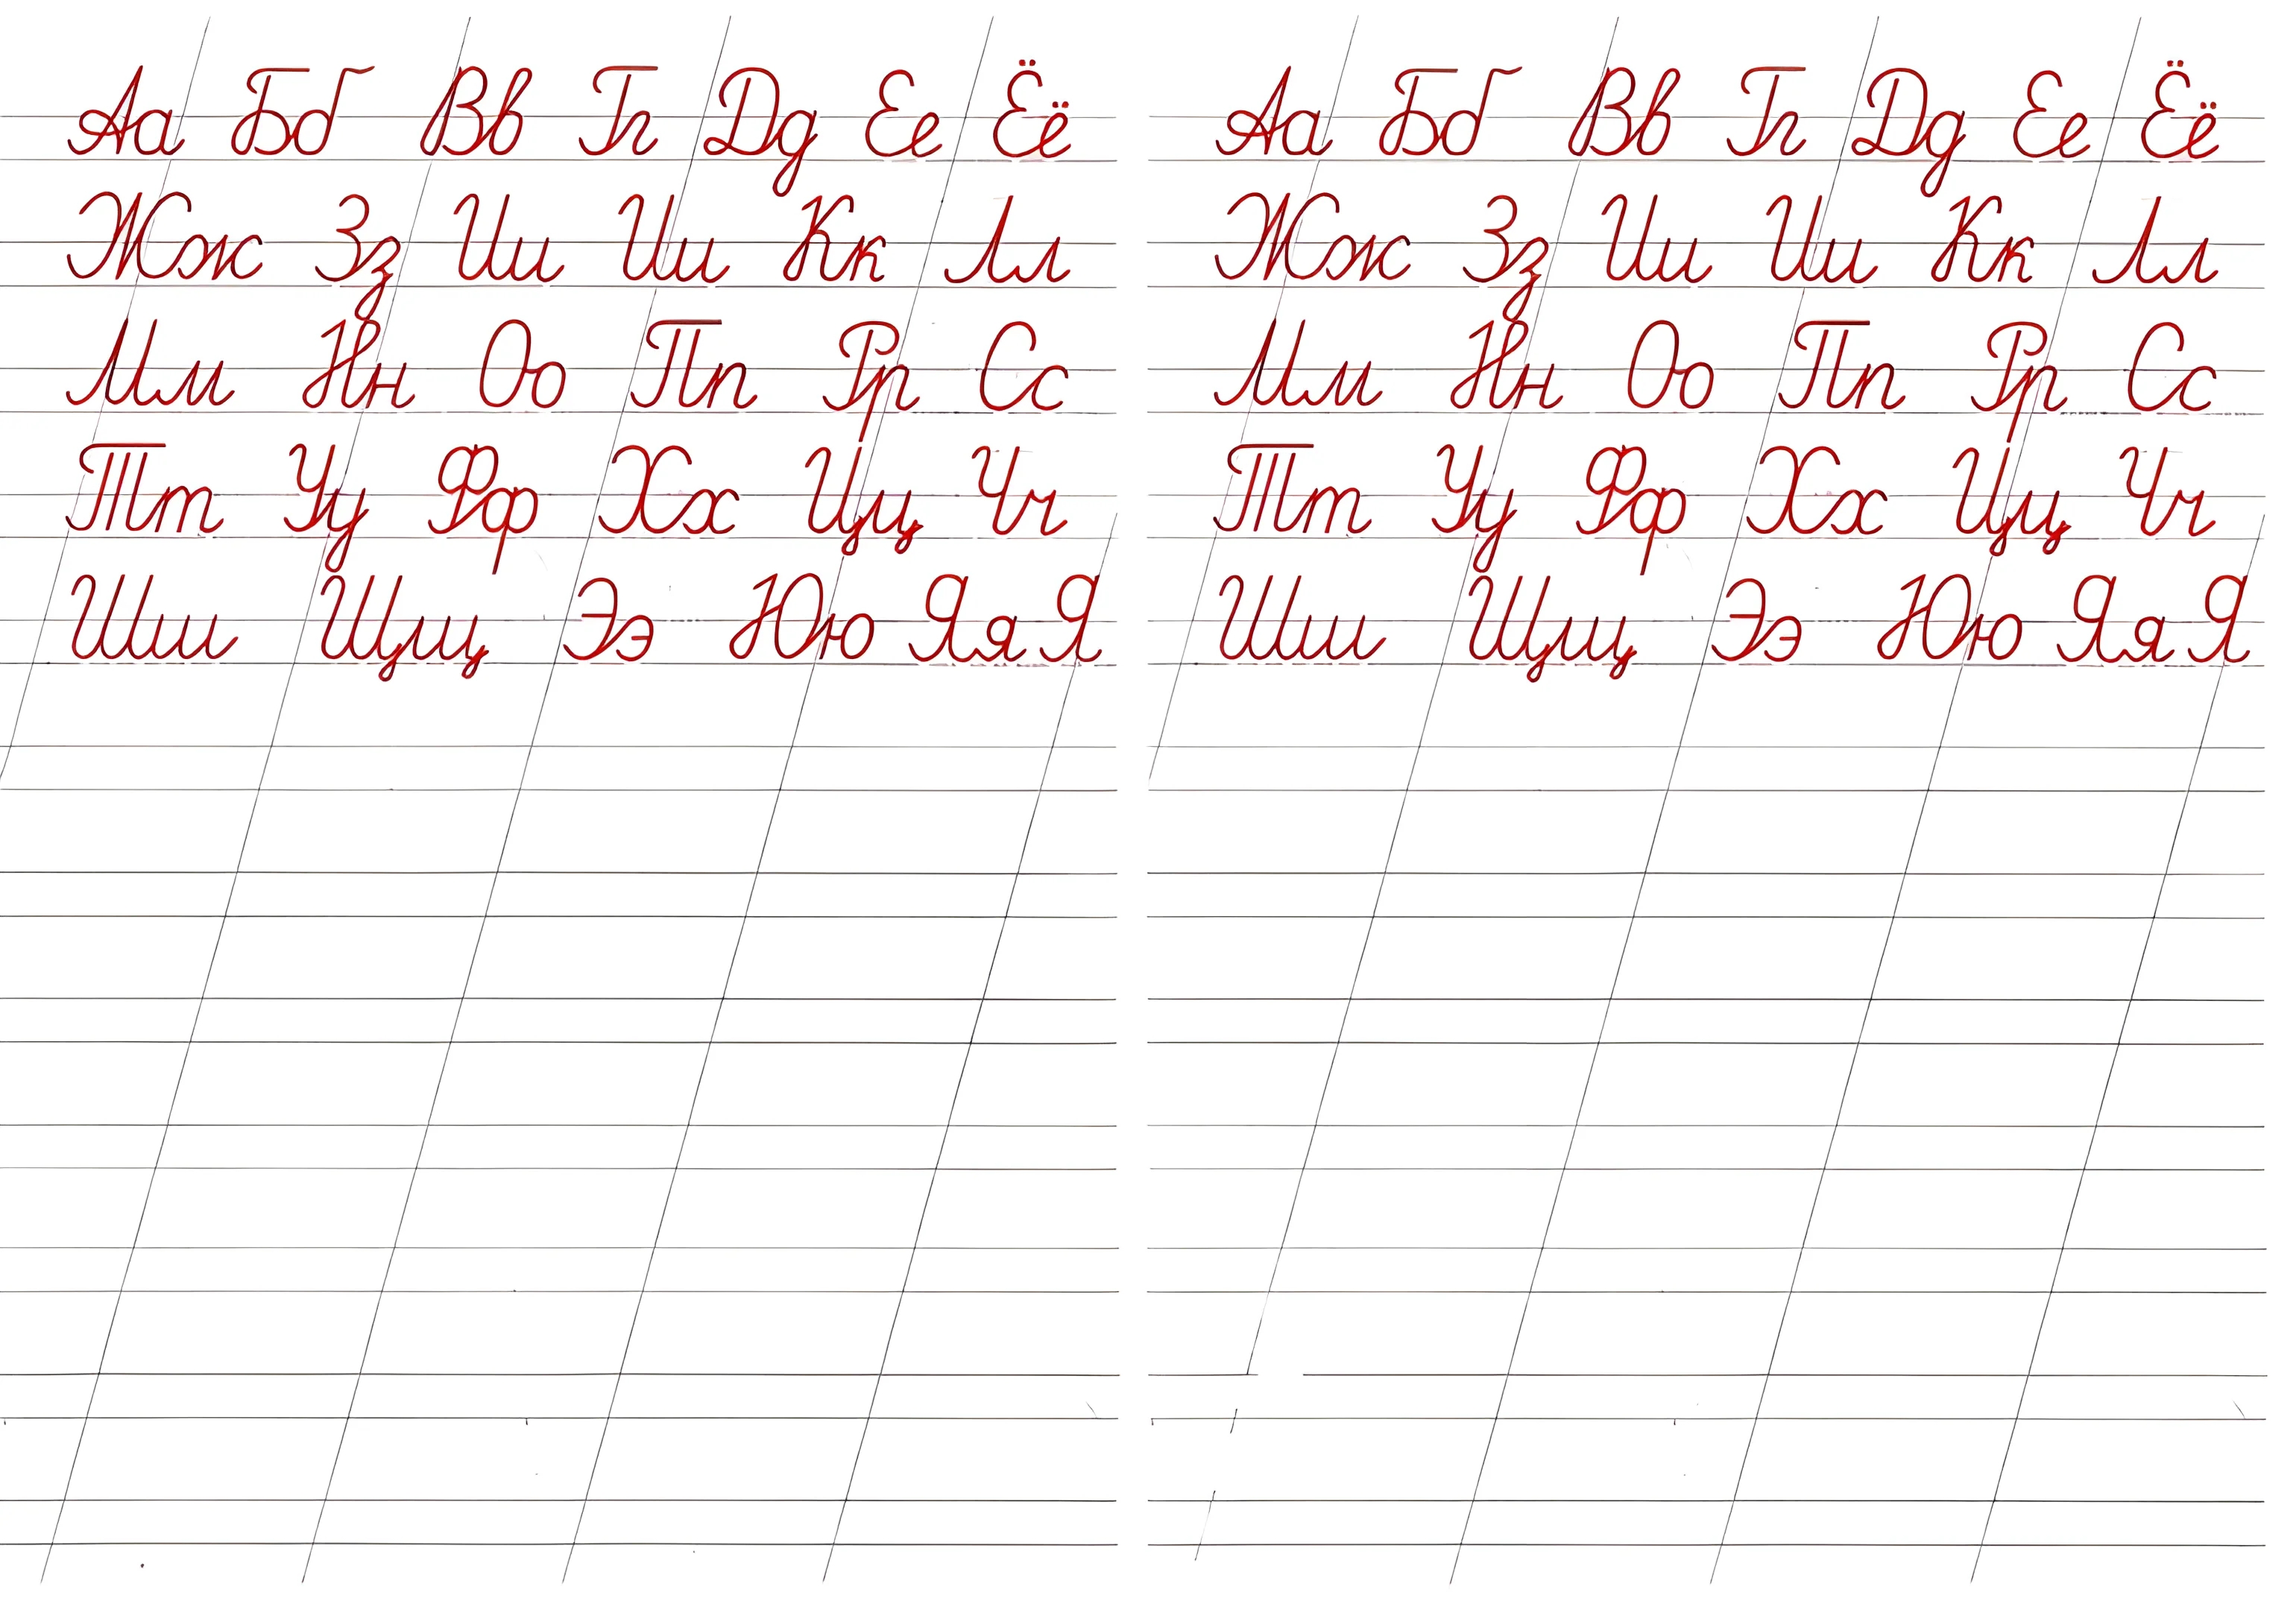 Аа Бб Вв Гг Дд Ее Ёё
Жж Зз Ии Ии Кк Лл
Мм Нн Оо Пп Рр Сс
Тт Уу Фф Хх Цц Чч
Шш Щщ Ээ Юю Яя Я
Аа Бб Вв Гг Дд Ее Ёё
Жж Зз Ии Ии Кк Лл
Мм Нн Оо Пп Рр Сс
Тт Уу Фф Хх Цц Чч
Шш Щщ Ээ Юю Яя Я